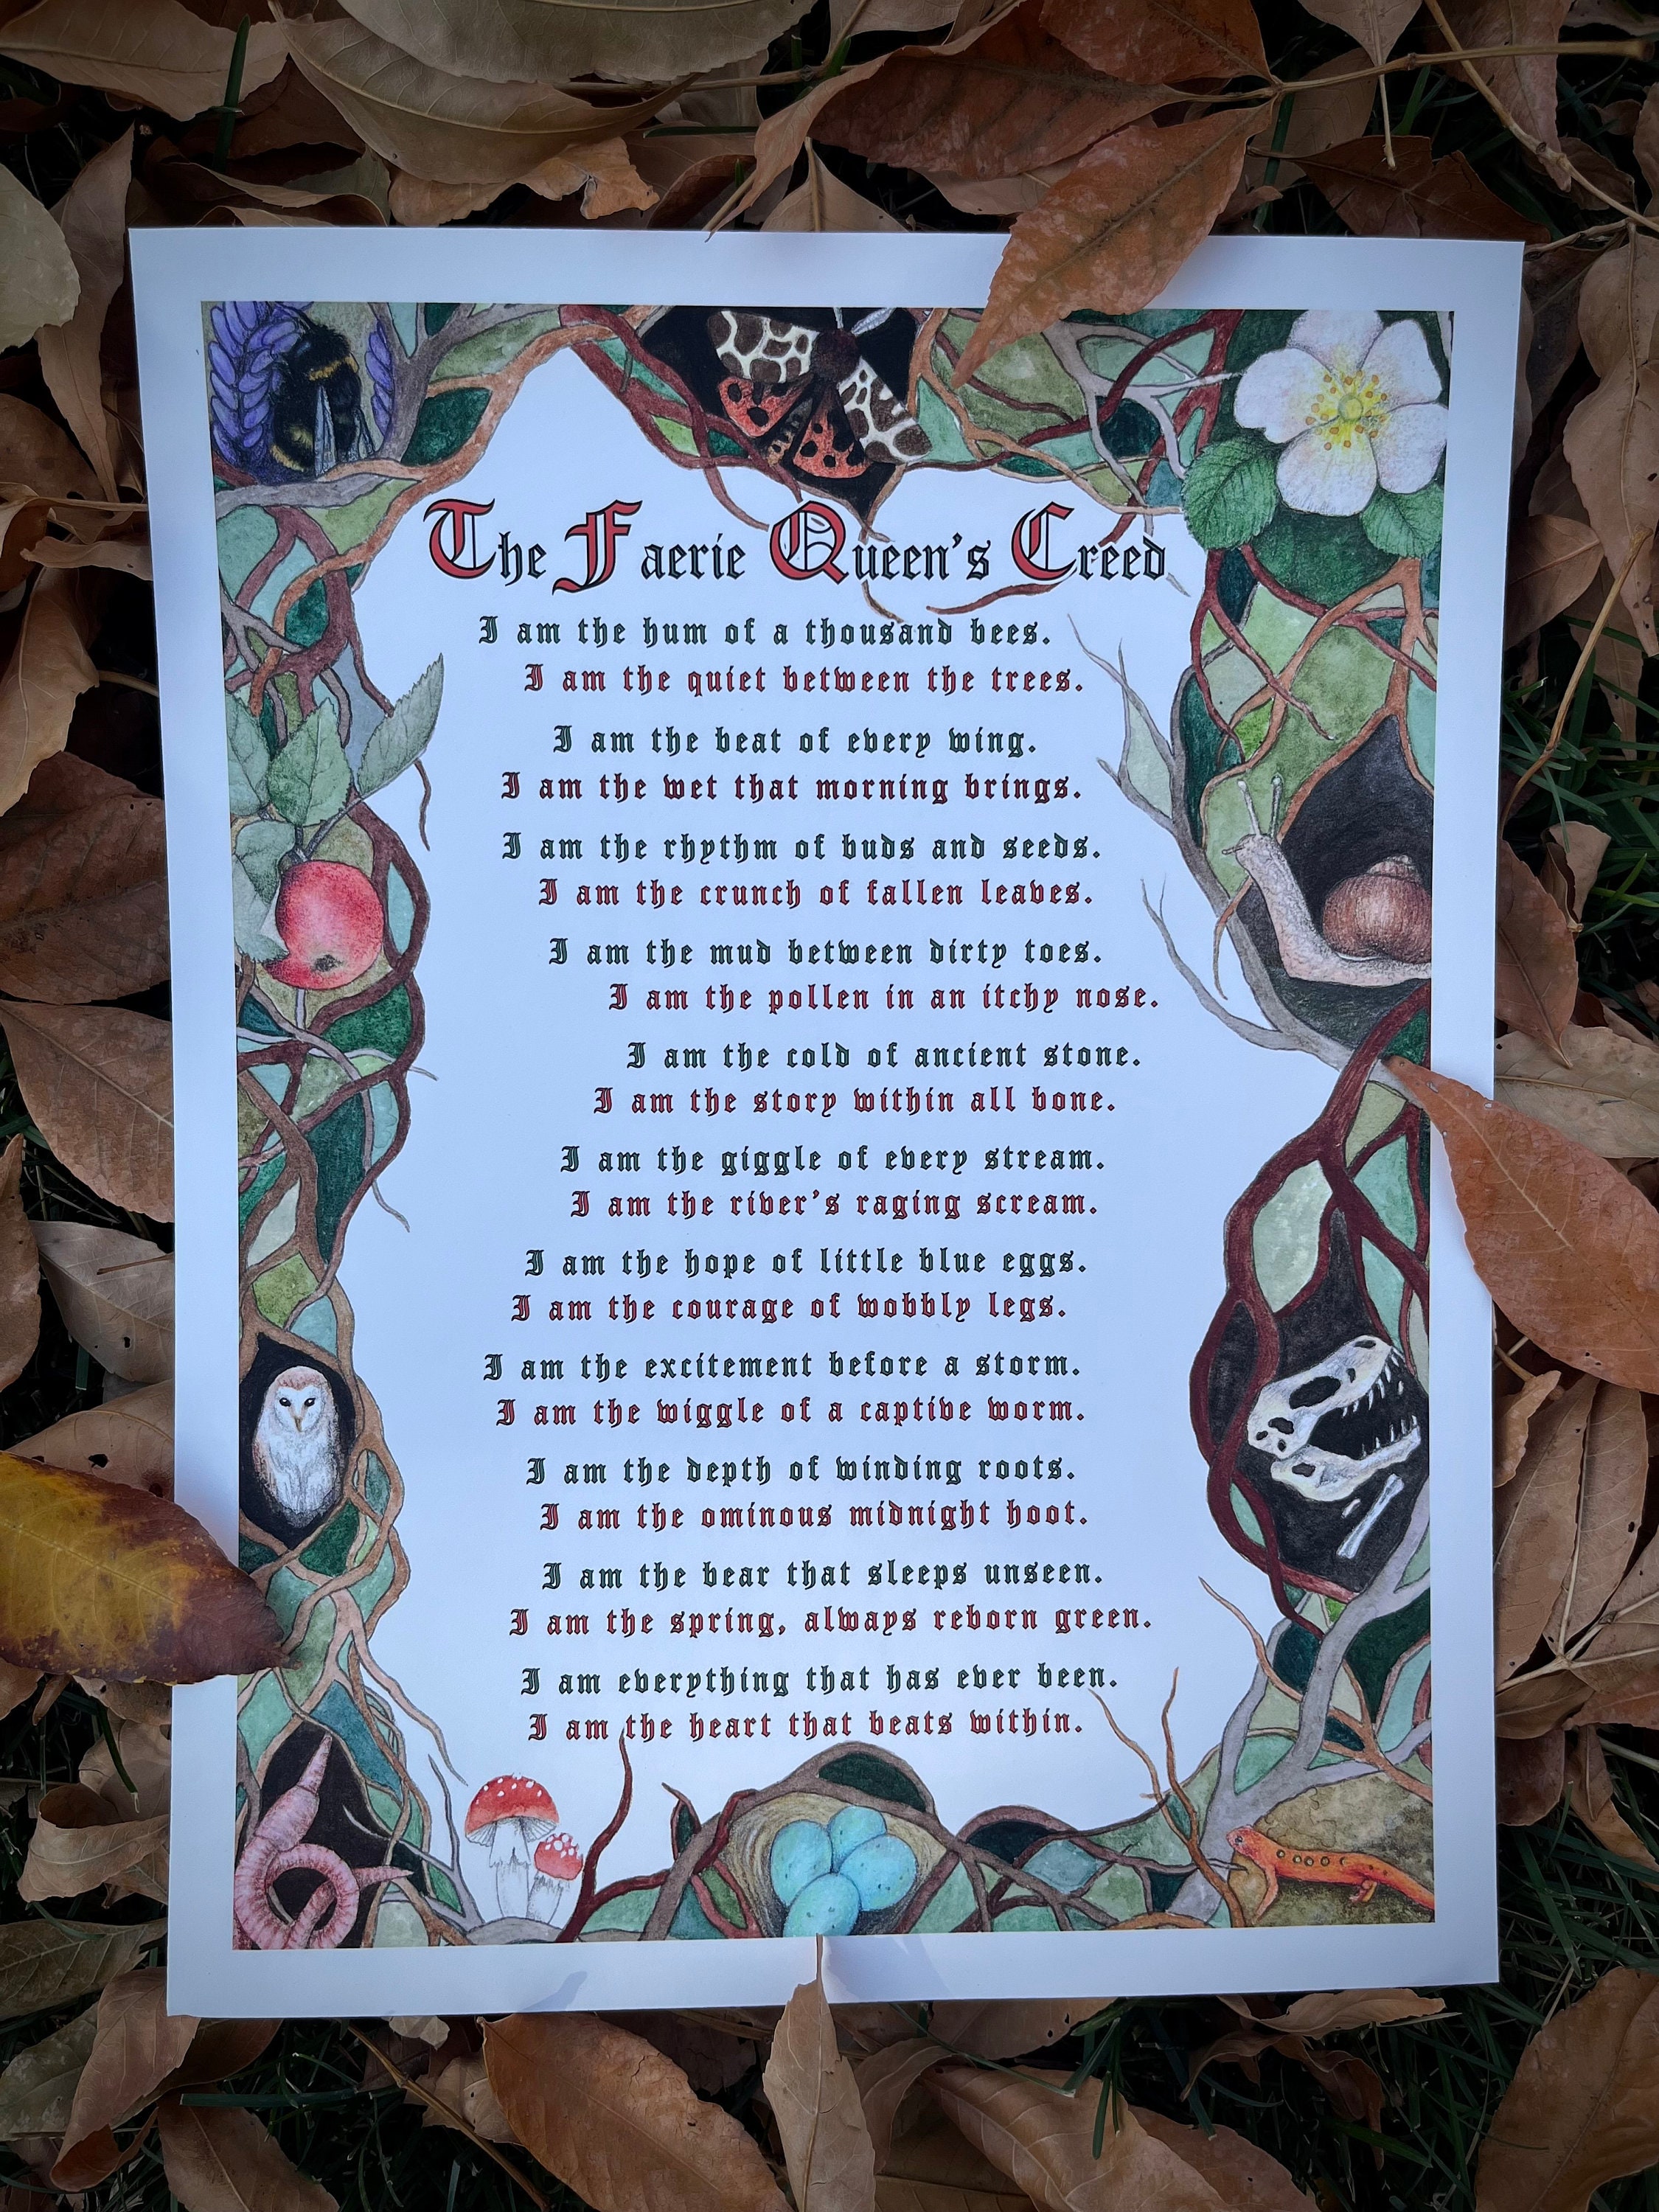 The Faerie Queen's Creed
I am the hum of a thousand bees.
I am the quiet between the trees.
I am the beat of every wing.
I am the wet that morning brings.
I am the rhythm of buds and seeds.
I am the crunch of fallen leaves.
I am the mud between dirty toes.
I am the pollen in an itchy nose.
I am the cold of ancient stone.
I am the story within all bone.
I am the giggle of every stream.
I am the river's raging scream.
I am the hope of little blue eggs.
I am the courage of wobbly legs.
I am the excitement before a storm.
I am the wiggle of a captive worm.
I am the depth of winding roots.
I am the ominous midnight hoot.
I am the bear that sleeps unseen.
I am the spring, always reborn green.
I am everything that has ever been.
I am the heart that beats within.